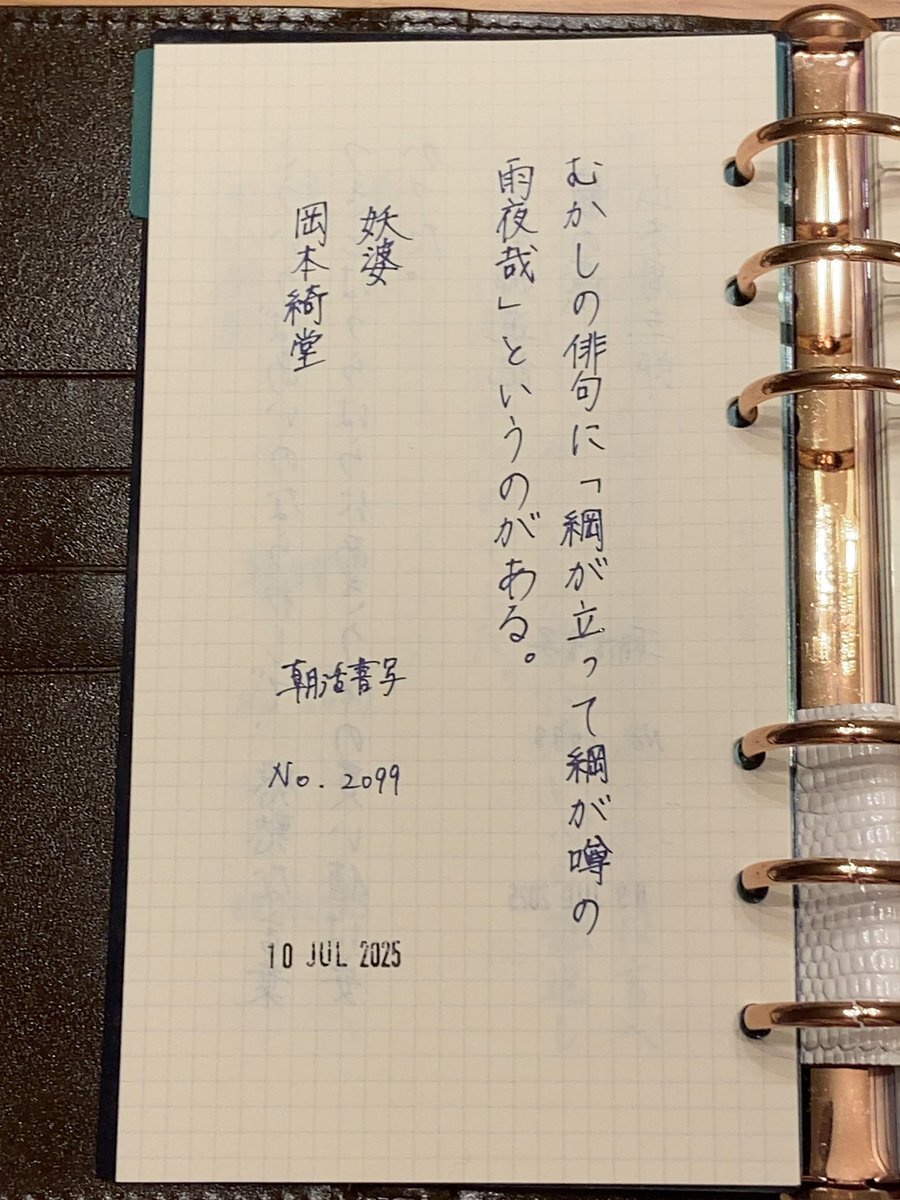 むかしの俳句に「綱が立って綱が噂の
雨夜哉」というのがある。
妖婆
岡本綺堂
朝活書写
No. 2099
10 JUL 2025